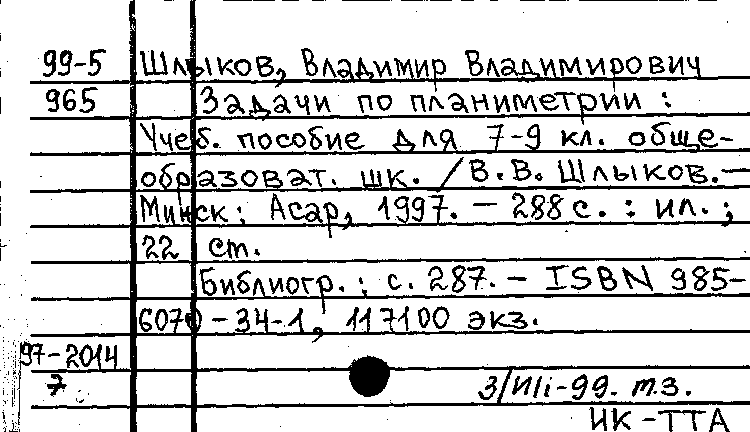 99-5 Шлыков, Владимир Владимирович
965 Задачи по планиметрии :
Учеб. пособие для 7-9 кл. обще-
образоват. шк. / В.В. Шлыков. —
Минск : Асар, 1997. — 288 с. : ил. ;
22 ст.
Библиогр. : с. 287. — ISBN 985-
6070-34-1, 117100 экз.
97-2014
7 3/III-99. т.з.
ИК-ТТА